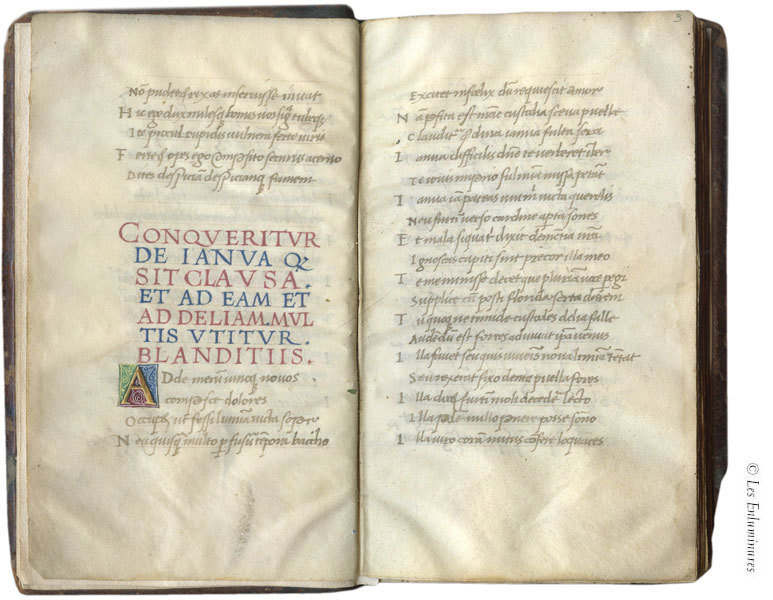 Nō pudet & rixas inseruisse iuuat
Hic ego dux milesq; bonus uos signa tubeq;
Ite procul cupidis uulnera ferte uiris
Ferte & opes ego composito securus aceruo
Dites despiciam despiciamq; famem
CONQVERITVR
DE IANVA Q&
SIT CLAVSA.
ET AD EAM ET
AD DELIAM.MVL
TIS VTITVR.
BLANDITIIS.
Adde merum uinoq; nouos
compesce dolores
Occupet ut fessi lumina uicta sopor
Neu quisq; multo perfusū tempora baccho
3
Excitet infoelix dū requiescit amor
Nā posita est nrae custodia saeua puelle
Clauditr & dura ianua fulta sera
Ianua difficilis dn̄e te uerberet imber
Te iouis imperio fulmina missa petāt
Ianua iā pateas uni mi uicta querelis
Neu furtī uerso cardine aperta sones
Et mala siqua tī dixit dementia nrā
Ignoscas capiti sint precor illa meo
Te meminisse decet que plurima uoce peregi
Supplice cū posti florida serta darem
Tu quoq; ne timide custodes delia falle
Audendū est fortes adiuuat ipa uenus
Illa fauet seu quis iuuenis noua limina tētat
Seu reserat fixo dente puella fores
Illa docet furti molli decedere lecto
Illa pedem nullo ponere posse sono
Illa uiro corā nutus cōferre loquaces
© Les Enluminures